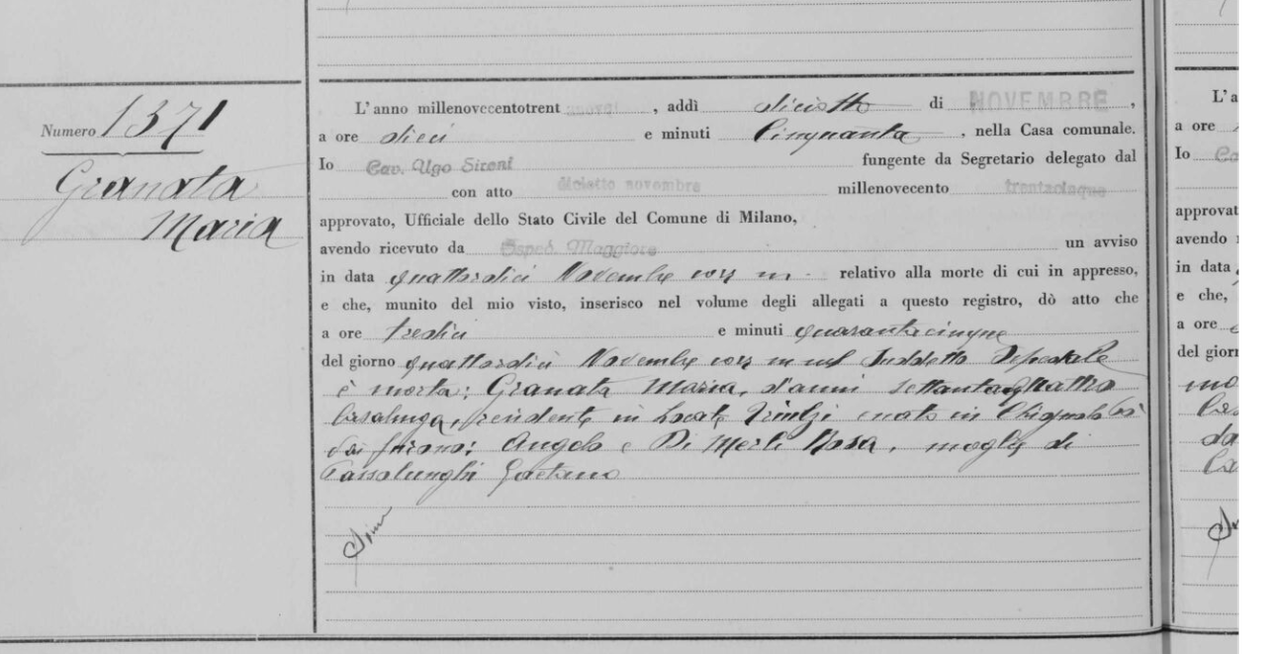 Numero 1371
Granata
Maria
L'anno millenovecentotrent nove, addì diciotto di NOVEMBRE,
a ore dieci e minuti Cinquanta, nella Casa comunale.
Io Cav. Ugo Sironi fungente da Segretario delegato dal
con atto diciotto novembre millenovecento trentacinque
approvato, Ufficiale dello Stato Civile del Comune di Milano,
avendo ricevuto da Osped. Maggiore un avviso
in data quattordici Novembre relativo alla morte di cui in appresso,
e che, munito del mio visto, inserisco nel volume degli allegati a questo registro, dò atto che
a ore tredici e minuti quarantacinque
del giorno quattordici Novembre nel suddetto Ospedale
è morta: Granata Maria, d'anni settantaquattro
Casalinga, residente in Locate Triulzi e nata in Chignolo
da furono: Angelo e Di Merli Rosa, moglie di
Passolunghi Gaetano
L'a
a ore
Io
approvat
avendo
in data
e che,
a ore
del giorn